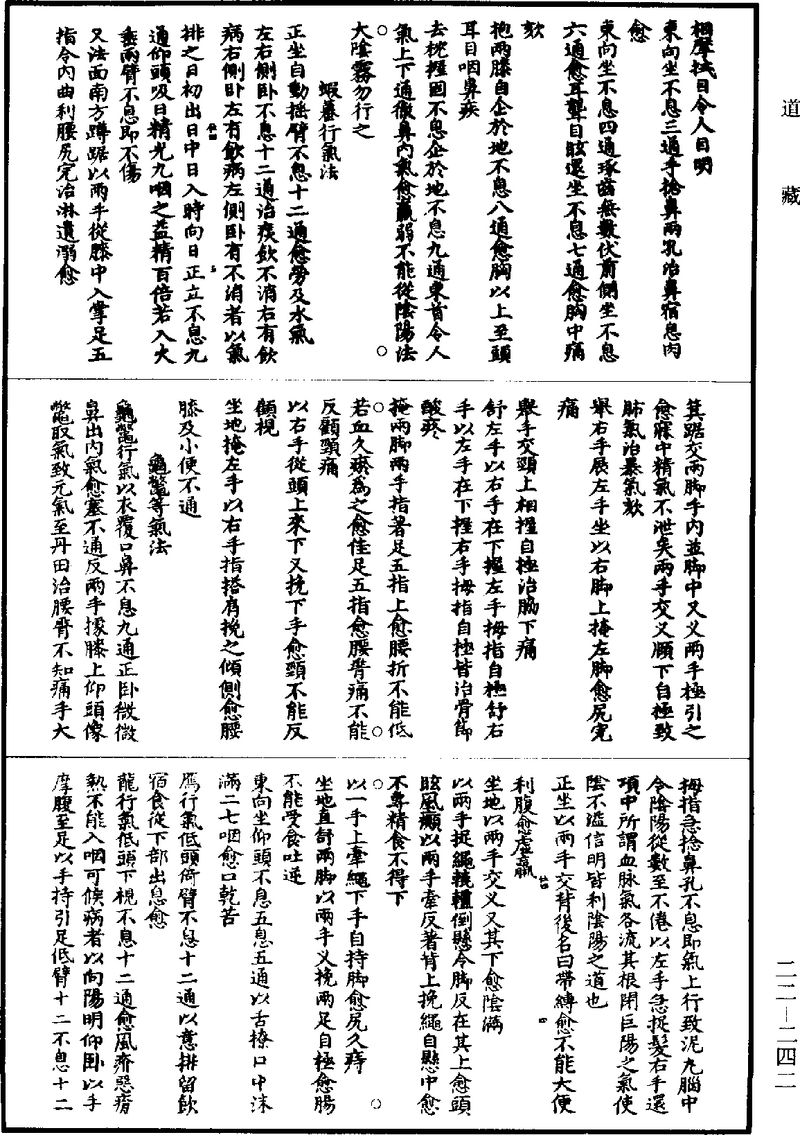 道藏
相摩拭目令人目明
東向坐不息三通手捻鼻兩孔治鼻宿息肉
愈
東向坐不息四通琢齒無數伏前側坐不息
六通愈耳聾目眩還坐不息七通愈胸中痛
欬
抱兩膝自企於地不息八通愈胸以上至頭
耳目咽鼻疾
去枕握固不息企於地不息九通東首令人
氣上下通徹鼻內氣愈羸弱不能從陰陽法
大陰霧勿行之
蝦蟇行氣法
正坐自動搖臂不息十二通愈勞及水氣
左右側卧不息十二通治痰飲不消右有飲
病右側卧左有飲病左側卧有不消者以氣
排之日初出日中日入時向日正立不息九
通仰頭吸日精光九咽之益精百倍若入火
垂兩臂不息即不傷
又法面南方蹲踞以兩手從膝中入掌足五
指令內曲利腰尻完治淋遺溺愈
箕踞交兩脚手內並脚中又义兩手極引之
愈寐中精氣不泄矣兩手交义頤下自極致
肺氣治暴氣欬
舉右手展左手坐以右脚上掩左脚愈尻完
痛
舉手交頸上相握自極治脇下痛
舒左手以右手在下握左手拇指自極舒右
手以左手在下握右手拇指自極皆治骨節
酸疼
掩兩脚兩手指著足五指上愈腰折不能低
若血久瘀為之愈佳足五指愈腰脊痛不能
反顧頸痛
以右手從頭上來下又挽下手愈頸不能反
顧視
坐地掩左手以右手指搭肩挽之傾側愈腰
膝及小便不通
龜鱉等氣法
龜鱉行氣以衣覆口鼻不息九通正卧微微
鼻出內氣愈塞不通反兩手據膝上仰頭像
鱉取氣致元氣至丹田治腰脊不知痛手大
拇指急捻鼻孔不息即氣上行致泥丸腦中
令陰陽從數至不倦以左手急捉髮右手還
項中所謂血脉氣各流其根閉巨陽之氣使
陰不溢信明皆利陰陽之道也
正坐以兩手交背後名曰帶縛愈不能大便
利腹愈虛羸
坐地以兩手交义又其下愈陰滿
以兩手捉繩轆轤倒懸令脚反在其上愈頭
眩風癲以兩手牽反著背上挽繩自懸中愈
不專精食不得下
以一手上牽繩下手自持脚愈尻久痔
坐地直舒兩脚以兩手义挽兩足自極愈腸
不能受食吐逆
東向坐仰頭不息五息五通以舌撩口中沫
滿二七咽愈口乾苦
鴈行氣低頭倚臂不息十二通以意排留飲
宿食從下部出息愈
龍行氣低頭下視不息十二通愈風疥惡瘡
熱不能入咽可候病者以向陽明仰卧以手
摩腹至足以手持引足低臂十二不息十二
二二—二四二